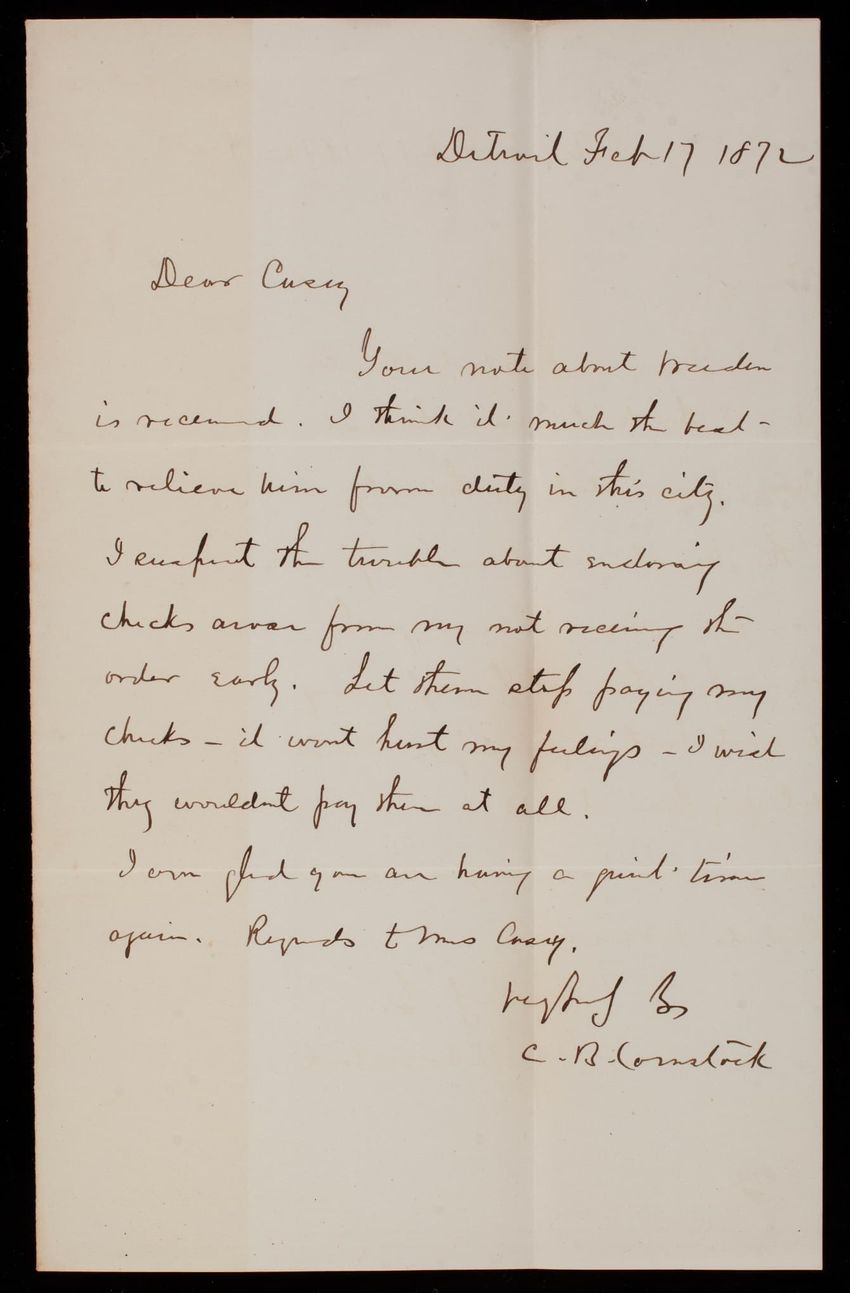 Detroit Feb 17 1872
Dear Casey
Your note about
is received. I think it much the best
to relieve him from duty in this city.
I suspect the trouble about endorsing
checks arose from my not receiving the
order early. Let them stop paying my
checks - it wont hurt my feelings - I wish
they wouldnt pay them at all.
I am glad you are having a quiet time
again. Regards to Mrs Casey.
C. B. Comstock